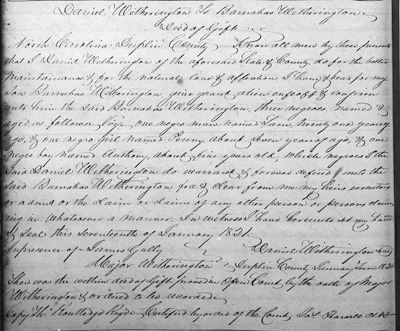 Daniel Wetherington To Barnabas Wetherington
Deed of Gift
North Carolina Duplin County Know all men by these presents
that I Daniel Wetherington of the aforesaid State & County do for the better
Maintainance & for the natural love & affection I have & bear for my
Son Barnabas Wetherington give grant alien enfeoff & confirm
unto him the Said Barnabas Wetherington three negroes named &
aged as follows one negro man named Sam twenty one years of
age, & one negro girl named Penny about seven years of age, & one
negro boy named Anthony, about five years old, which negroes I the
Said Daniel Wetherington do warrant & forever defend unto the
said Barnabas Wetherington free & clear from me my heirs executors
or admrs or the Claim or claims of any other person or persons claim
ing in whatsoever a manner. In witness I have hereunto set my hand
& Seal this Seventeenth of January 1821.
In presence of James Gully Daniel Wetherington
Major Wetherington Duplin County 1821
Then was the within deed of Gift proved in Open Court by the oath of Major
Wetherington & ordered to be
Certified by order of the County Jas Pearsall